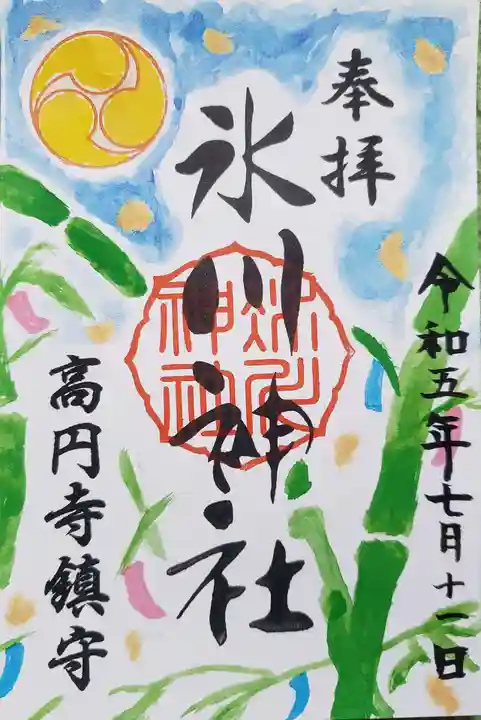 奉拝
氷川神社
令和五年七月十一日
高円寺鎮守
氷川
神社